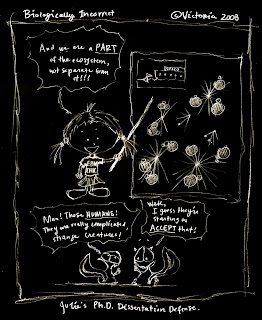 Biologically Incorrect
©Victoria 2008
And we are a PART
of the ecosystem,
not separate from
it!!!
Man! Those HUMANS!
They are really complicated,
strange creatures!
Well,
I guess they're
starting to
ACCEPT that!
Julia's Ph.D. Dessertation Defense.